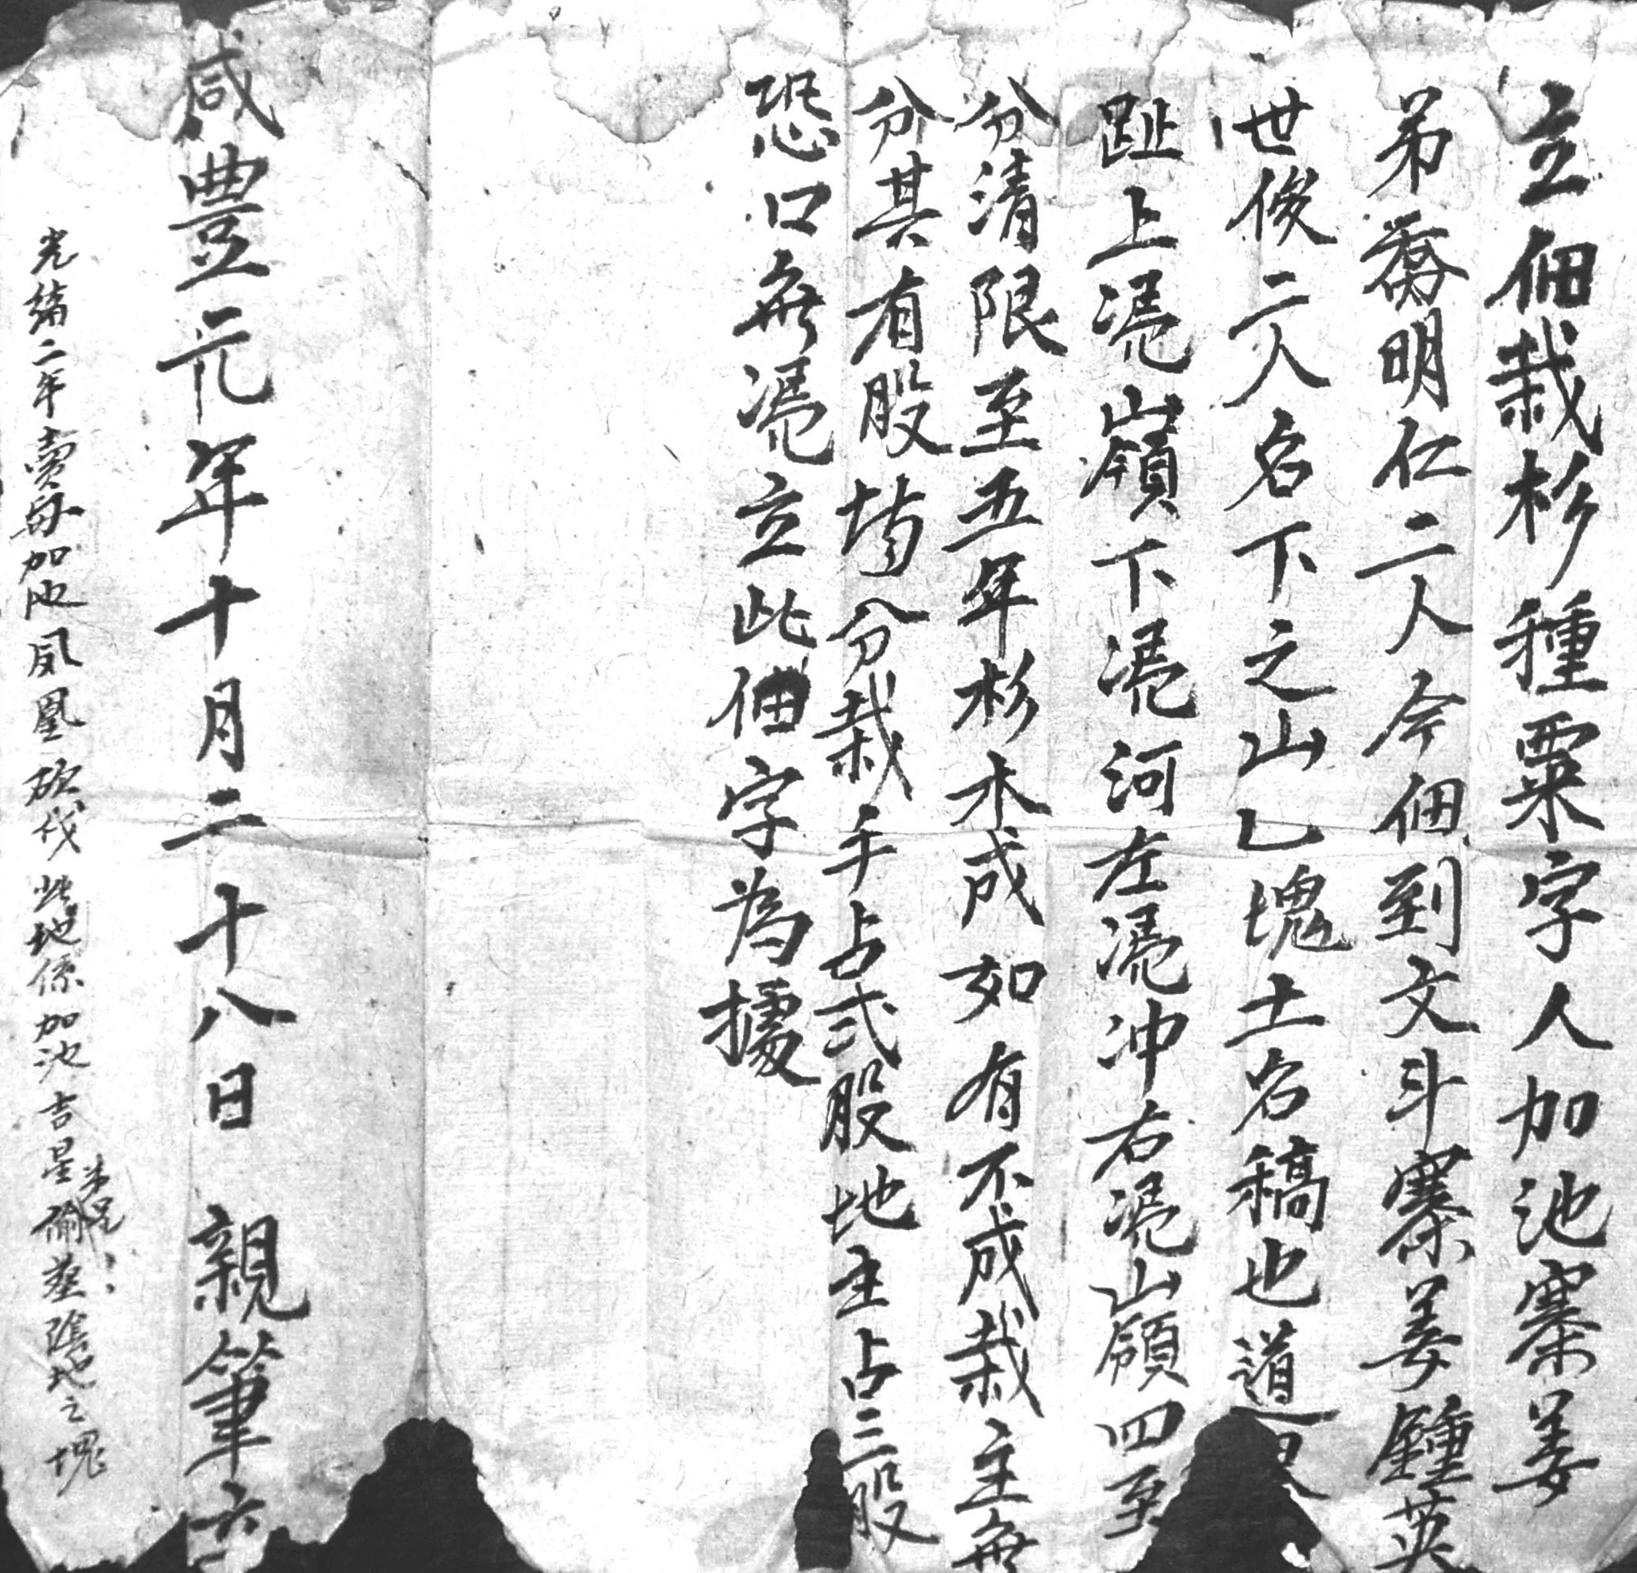 立佃栽杉種粟字人加池寨姜
弟喬明仁二人今佃到文斗寨姜鍾英
世俊二人名下之山乙塊土名稿也道
趾上凴山嶺下凴河左凴冲右凴山嶺四至
分清限至五年杉木成如有不成栽主無
分其有股均分栽手占弍股地主占三股
恐口無凴立此佃字為據
咸豐元年十月二十八日 親筆立
光緒二年賣與加池鳳凰砍伐此地係加池吉星偷葬陰地之塊